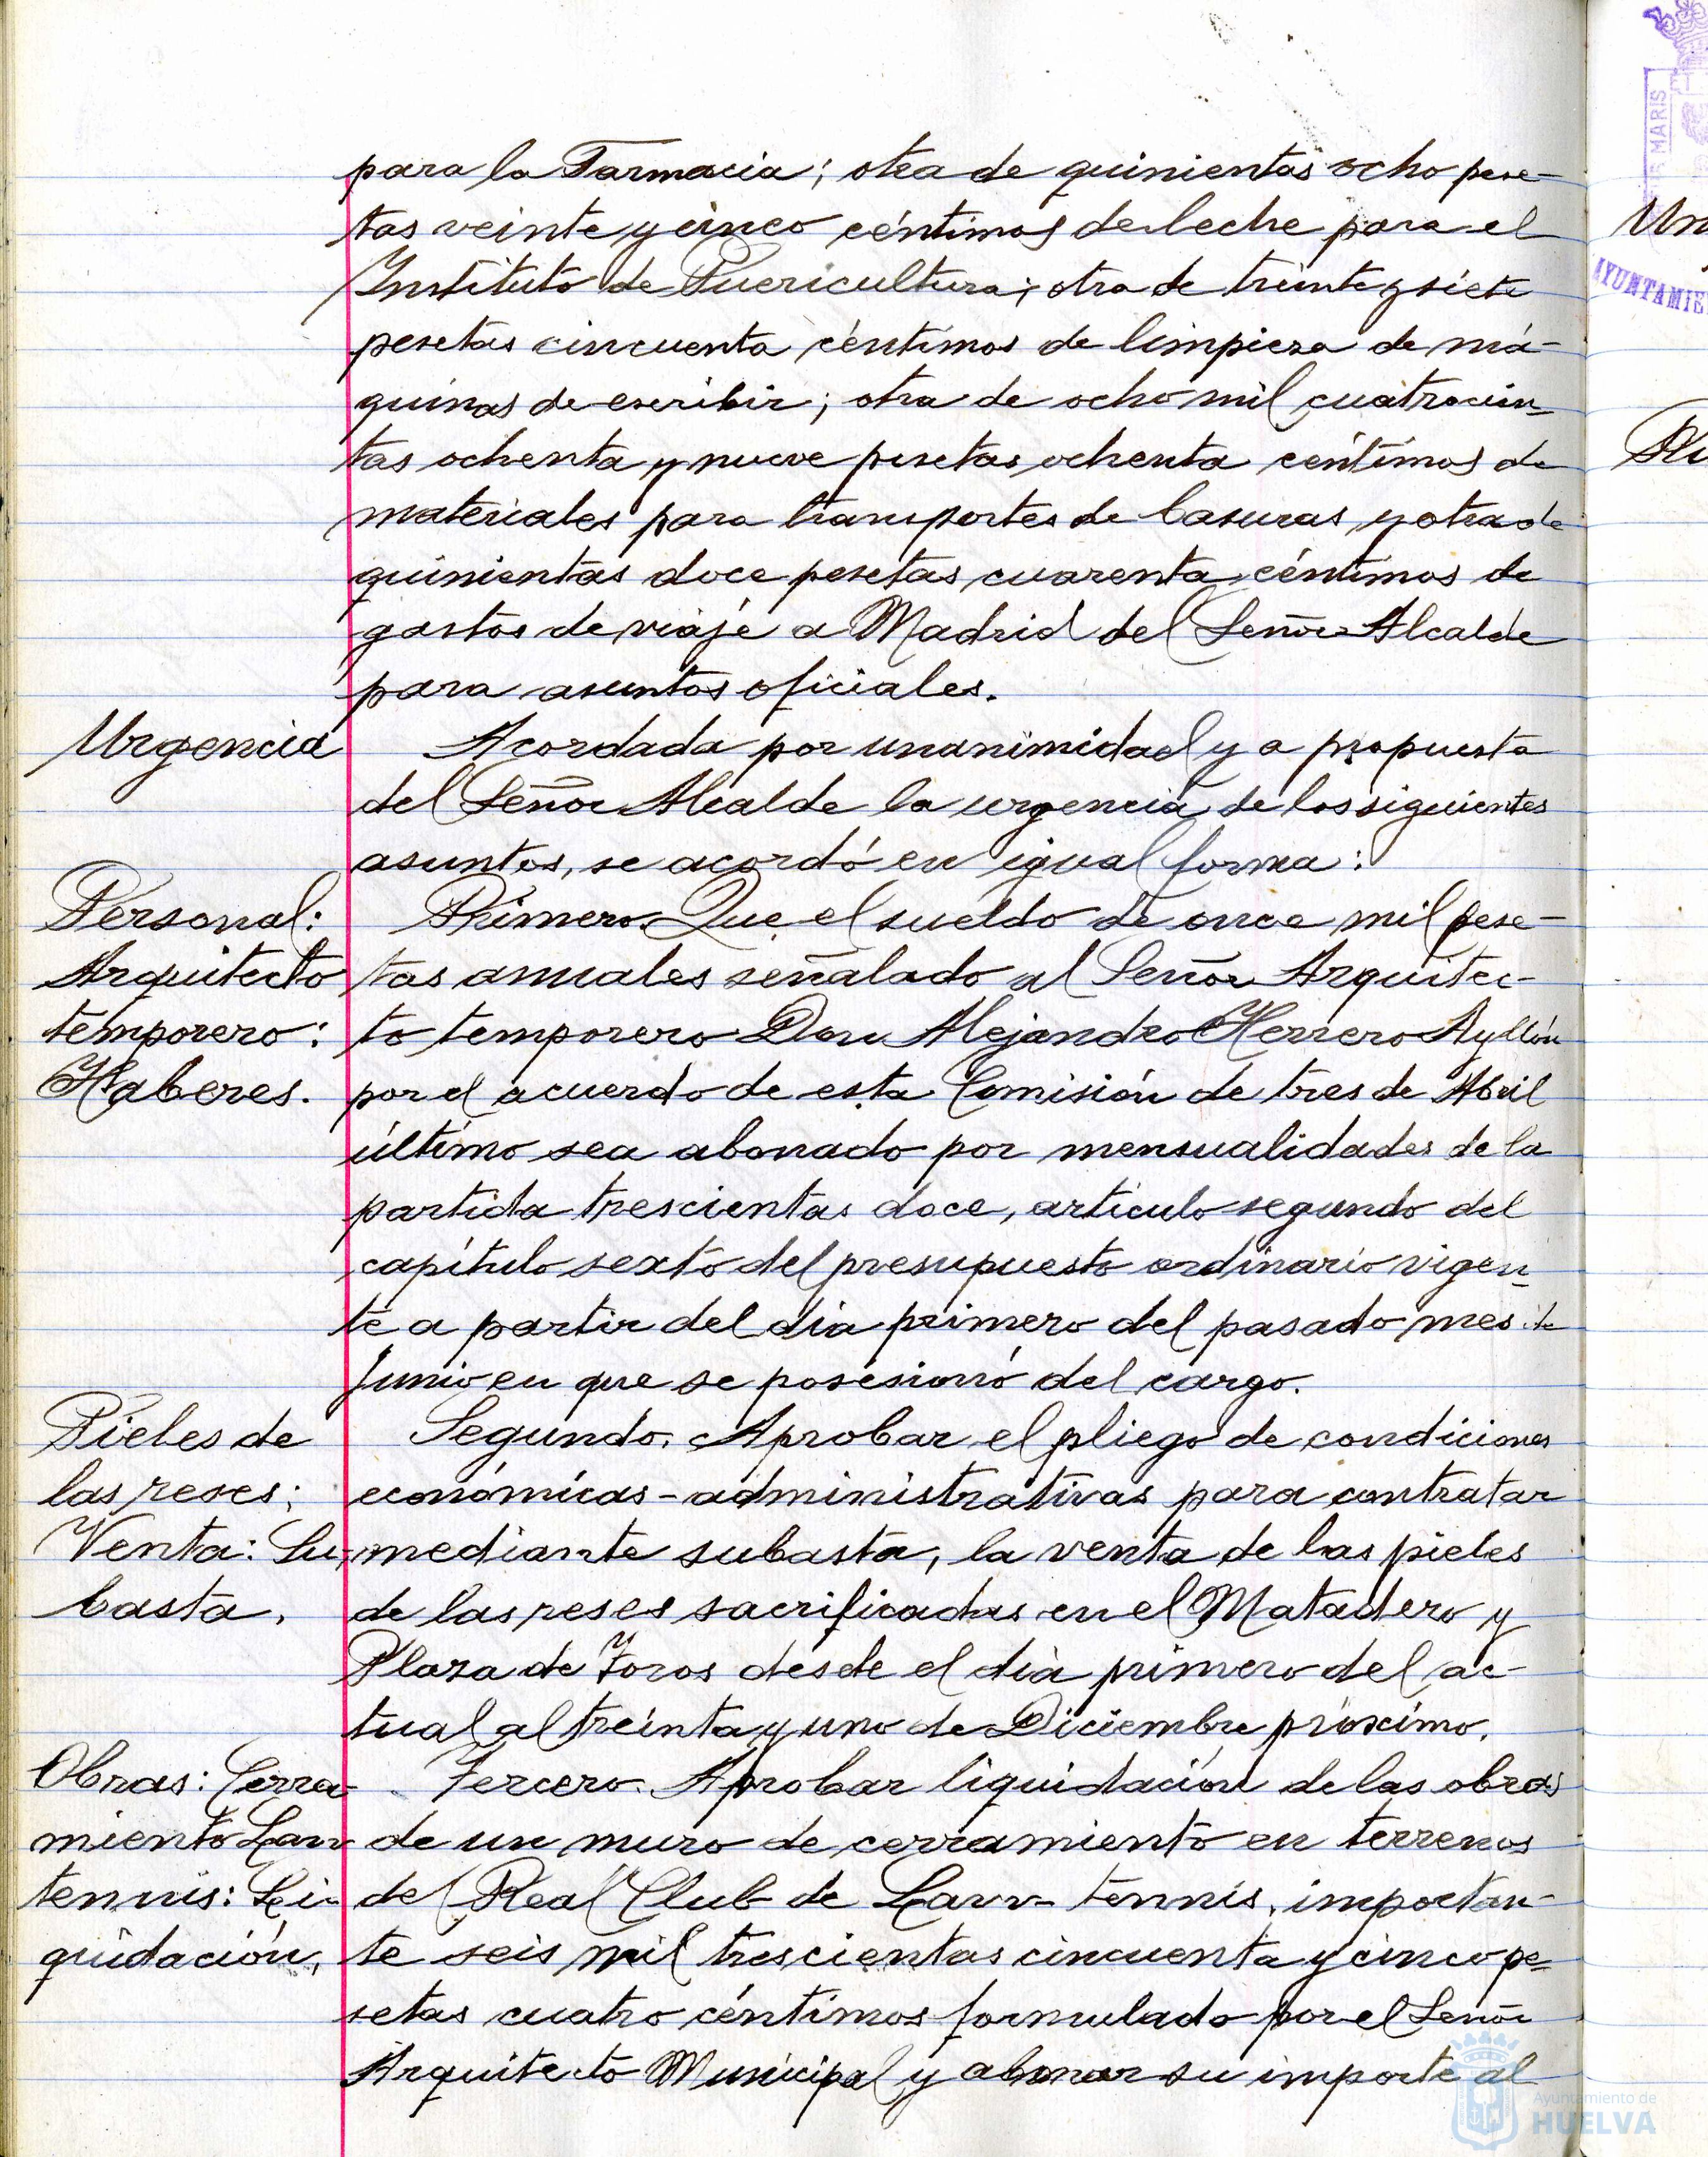 para la Farmacia; otra de quinientas ocho pese-
tas veinte y cinco céntimos de leche para el
Instituto de Puericultura; otra de treinta y siete
pesetas cincuenta céntimos de limpieza de má-
quinas de escribir; otra de ocho mil cuatrocien-
tas ochenta y nueve pesetas ochenta céntimos de
materiales para transportes de basuras, y otra de
quinientas doce pesetas cuarenta céntimos de
gastos de viaje a Madrid del Señor Alcalde
para asuntos oficiales.
Urgencia
Acordada por unanimidad y a propuesta
del Señor Alcalde la urgencia de los siguientes
asuntos, se acordó en igual forma:
Personal:
Arquitecto
temporero:
Haberes.
Primero. Que el sueldo de once mil pese-
tas anuales señalado al Señor Arquitec-
to temporero Don Alejandro Herrero Ayllón
por el acuerdo de esta Comisión de tres de Abril
último sea abonado por mensualidades de la
partida trescientas doce, artículo segundo del
capítulo sexto del presupuesto ordinario vigen-
te a partir del día primero del pasado mes de
Junio en que se posesionó del cargo.
Pieles de
las reses;
Venta: Su-
basta.
Segundo. Aprobar el pliego de condiciones
económicas-administrativas para contratar
mediante subasta, la venta de las pieles
de las reses sacrificadas en el Matadero y
Plaza de Toros desde el día primero del ac-
tual al treinta y uno de Diciembre próximo.
Obras: Cerra-
miento Lawn
tennis: Li-
quidación.
Tercero. Aprobar liquidación de las obras
de un muro de cerramiento en terrenos
del Real Club de Lawn-tennis, importan-
te seis mil trescientas cincuenta y cinco pe-
setas cuatro céntimos formulado por el Señor
Arquitecto Municipal y abonar su importe al
MARIS
AYUNTAMIE
Ayuntamiento de
HUELVA